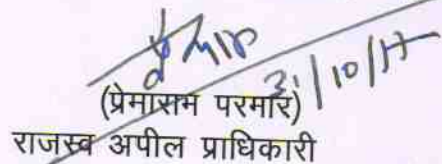 31/10/17
(प्रेमाराम परमार)
राजस्व अपील प्राधिकारी